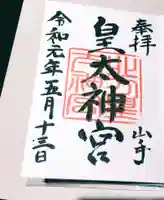 奉拝
皇太神宮
令和元年五月十三日